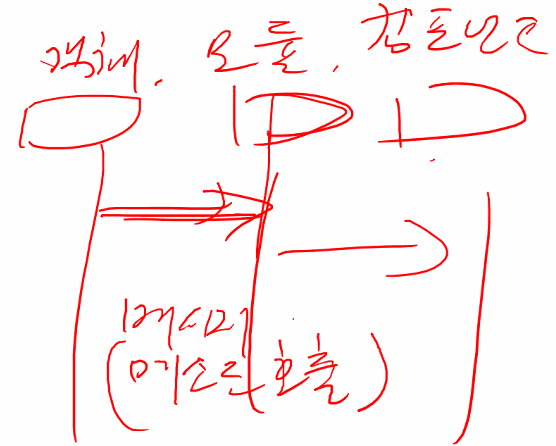 객체, 모듈, 컴포넌트
메시지
(메소드 호출)